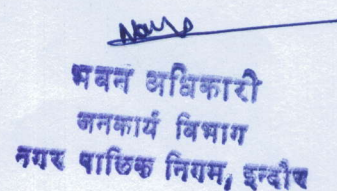 भवन अधिकारी
जनकार्य विभाग
नगर पालिक निगम, इन्दौर